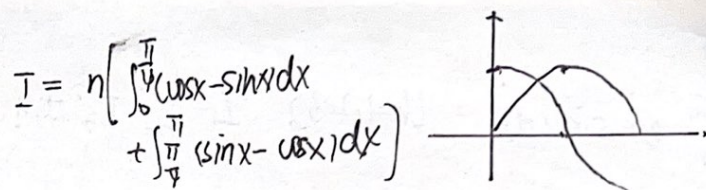 I = n[∫₀^{π/4}(cosx-sinx)dx
+∫_{π/4}^{π}(sinx-cosx)dx]